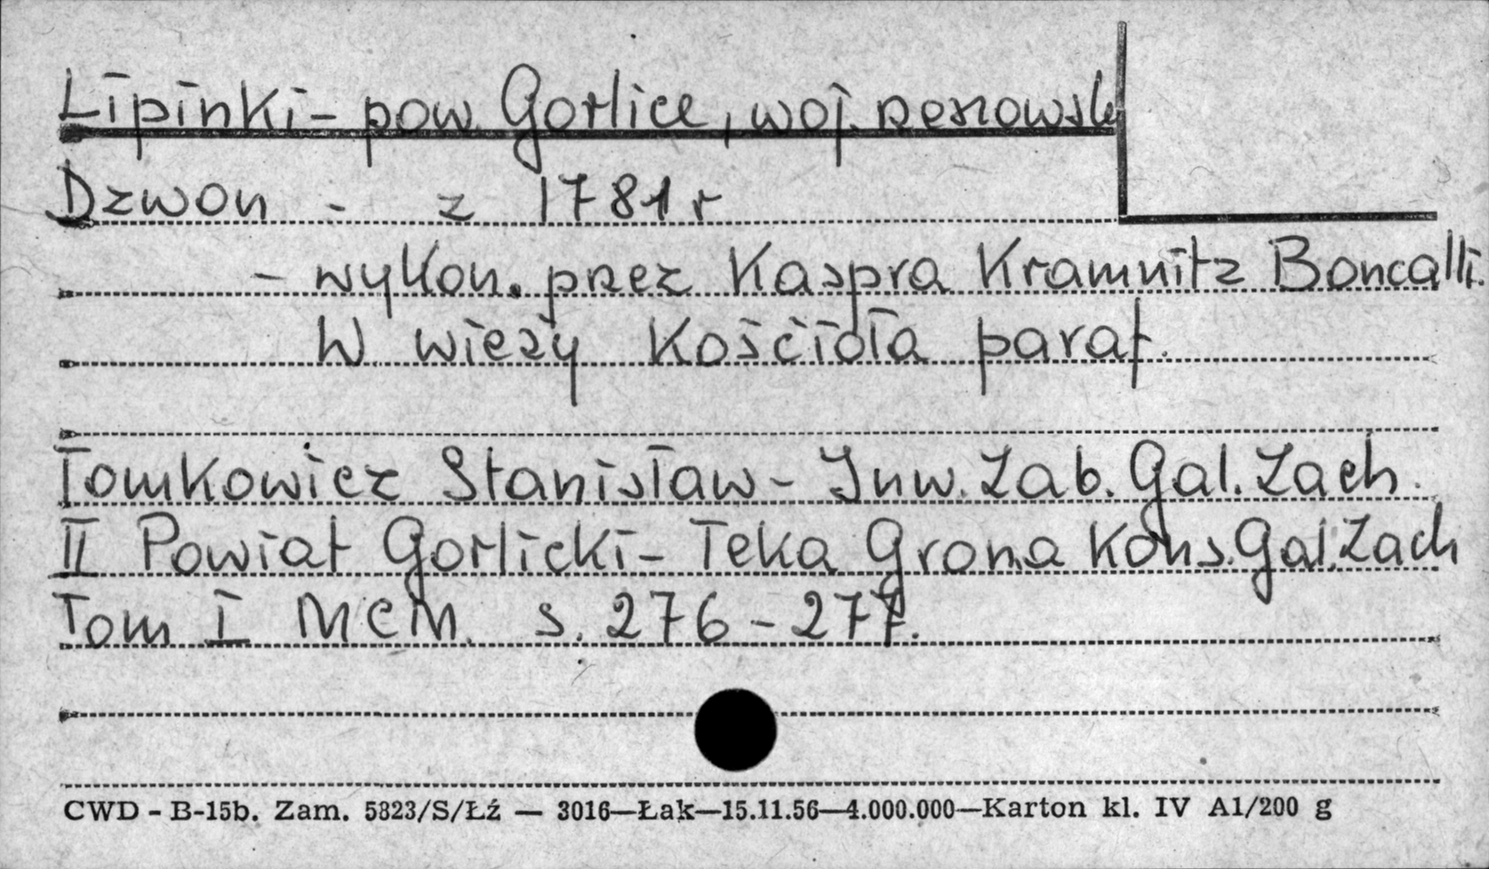 Lipinki - pow. Gorlice, woj. rzeszowsk
Dzwon - z 1781 r
- wykon. przez Kaspra Kramnitz Boncalli.
W wieży Kościoła paraf.
Tomkowicz Stanisław - Inw. Zab. Gal. Zach.
II Powiat Gorlicki - Teka Grona Kons. Gal. Zach
Tom I MCM. s. 276-277.
CWD - B-15b. Zam. 5823/S/Łź — 3016—Łąk—15.11.56—4.000.000—Karton kl. IV A1/200 g